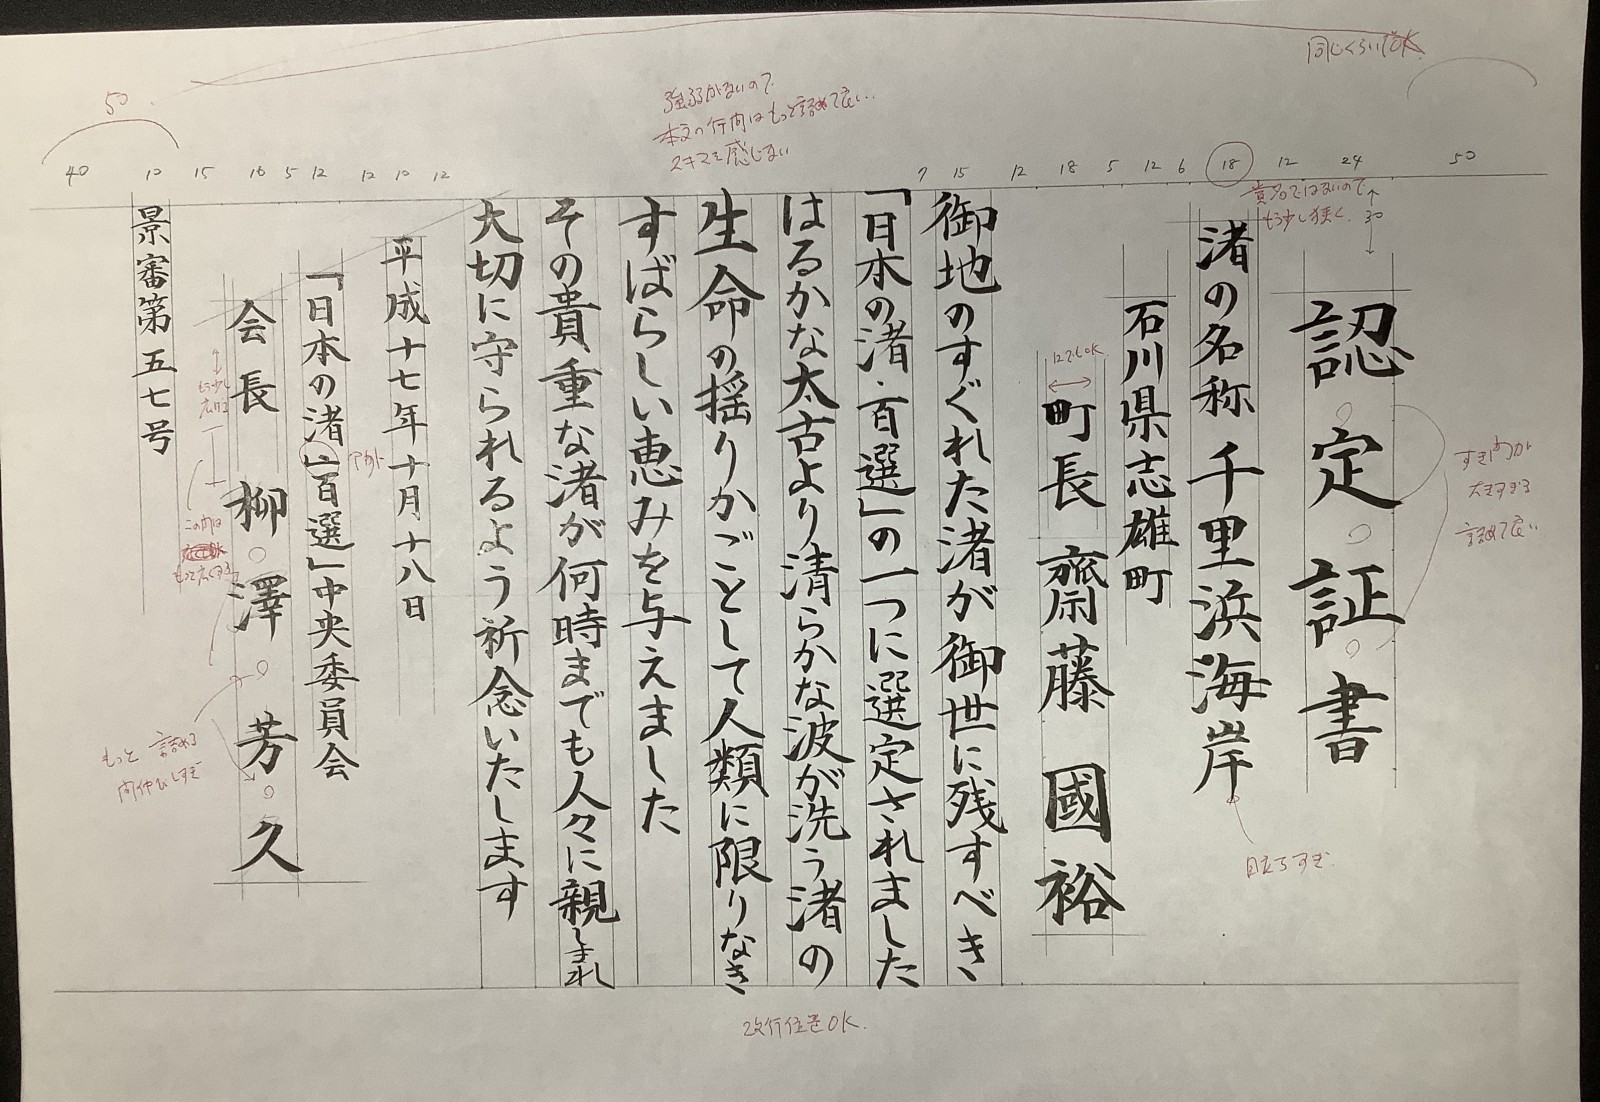 認定証書
渚の名称 千里浜海岸
石川県志雄町
町長 齋藤 國裕
御地のすぐれた渚が御世に残すべき
「日本の渚・百選」の一つに選定されました
はるかな太古より清らかな波が洗う渚の
生命の揺りかごとして人類に限りなき
すばらしい恵みを与えました
その貴重な渚が何時までも人々に親しまれ
大切に守られるよう祈念いたします
平成十七年十月十八日
「日本の渚」百選」中央委員会
会長 柳澤芳久
景審第五七号
同じくらいでOK
50
強弱がないので
本文の行間はもっと詰めて広い…
スキマを感じない
40 10 15 16 5 12 12 10 12 7 15 12 18 5 12 6 18 12 24 50
貴名ではないので
もう少し狭く
30
12でもOK
すきまが
大きすぎる
詰めて広い
アカト
もう少し
広げる
この間は
もっと広くする
もっと詰める
間伸びしすぎ
目立ちすぎ
改行位置OK.